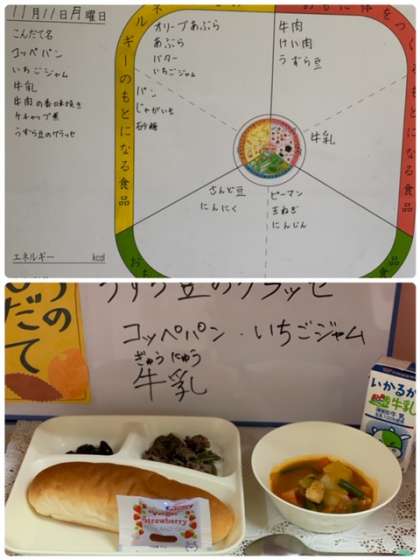 11月11日月曜日
こんだて名
コッペパン
いちごジャム
牛乳
牛肉の香味焼き
ケチャップ煮
うずら豆のグラッセ
エネルギー kcal
ルギーのもとになる食品
オリーブあぶら
あぶら
バター
いちごジャム
パン
じゃがいも
砂糖
おもに体をつくるもとになる食品
牛肉
けい肉
うずら豆
牛乳
さんど豆
にんにく
ピーマン
玉ねぎ
にんじん
食品
うずら豆のグラッセ
コッペパン・いちごジャム
ぎゅうにゅう
牛乳
だて
いかるが
牛乳
Strawberry